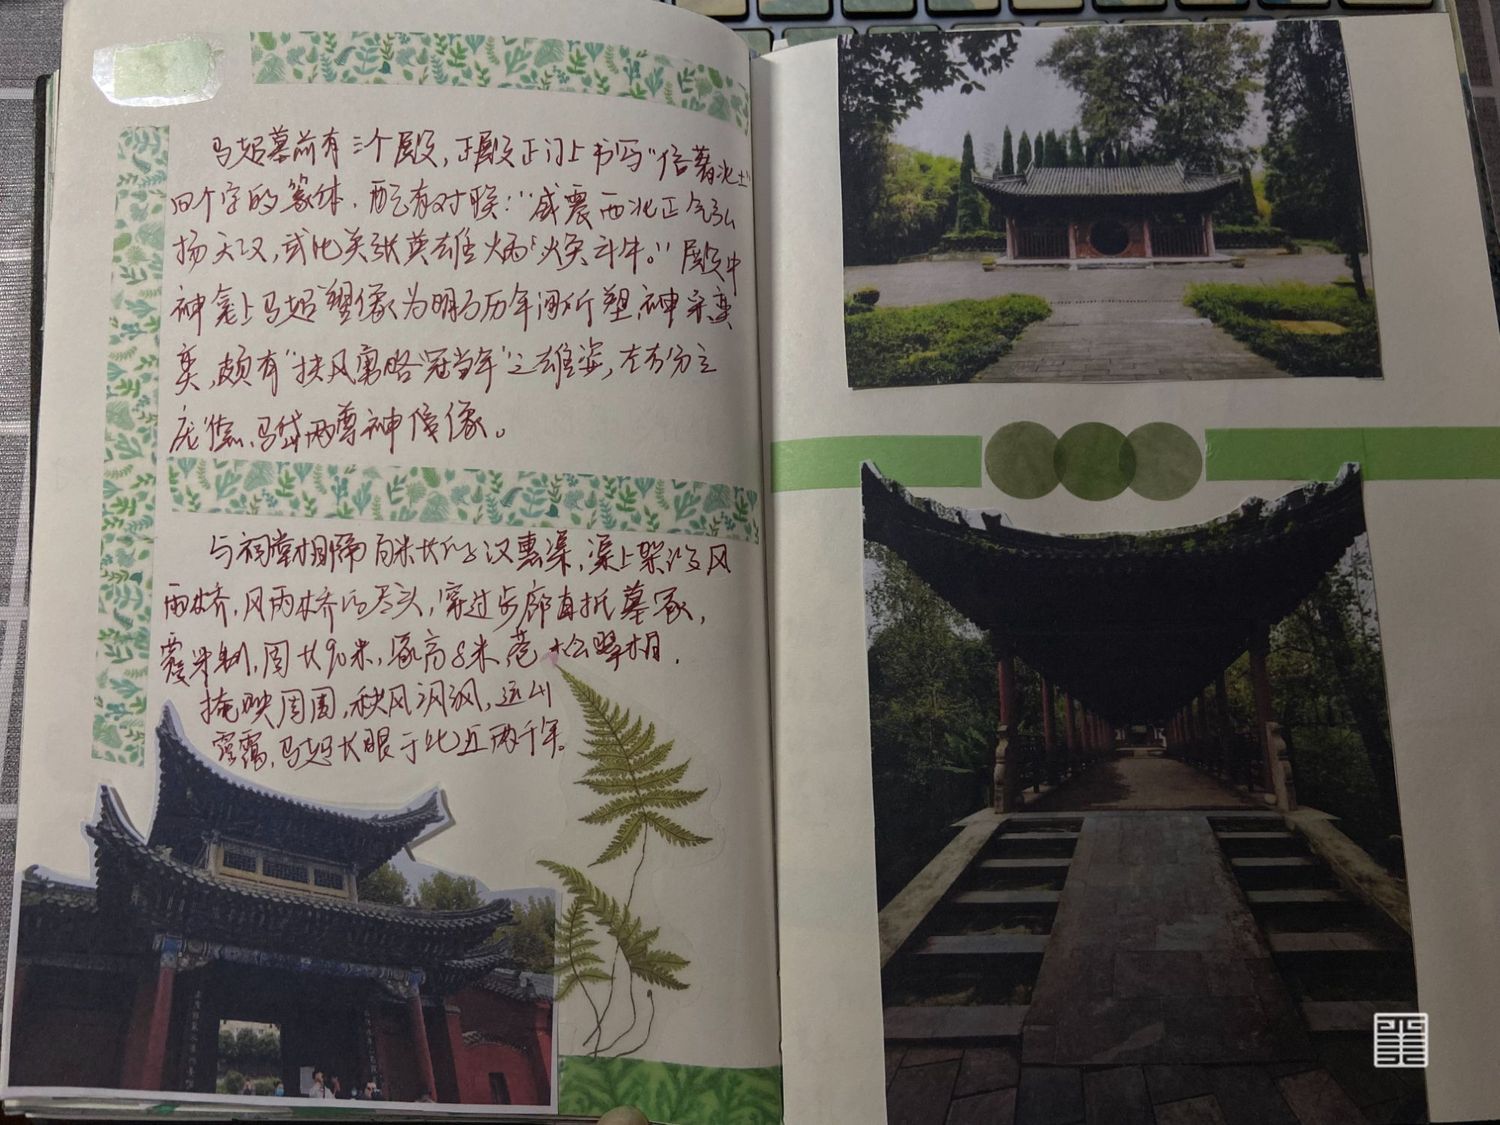 马超墓前有三个殿，正殿正门上书写“信著北土”
四个字的篆体，配有对联：“威震西北正气弘
扬天汉，武比关张英雄炳焕斗牛。”殿中
神龛上马超塑像为明万历年间所塑，神采奕
奕，颇有“扶风勇略冠当年”之雄姿，左右分立
庞德、马岱两尊神像。
与祠堂相隔百米长的是汉惠渠，渠上架设风
雨桥，风雨桥的尽头，穿过步廊直抵墓冢，
覆斗制，周长90米，冢高8米，苍松翠柏
掩映周围，秋风飒飒，远山
雾霭，马超长眠于此近两千年。